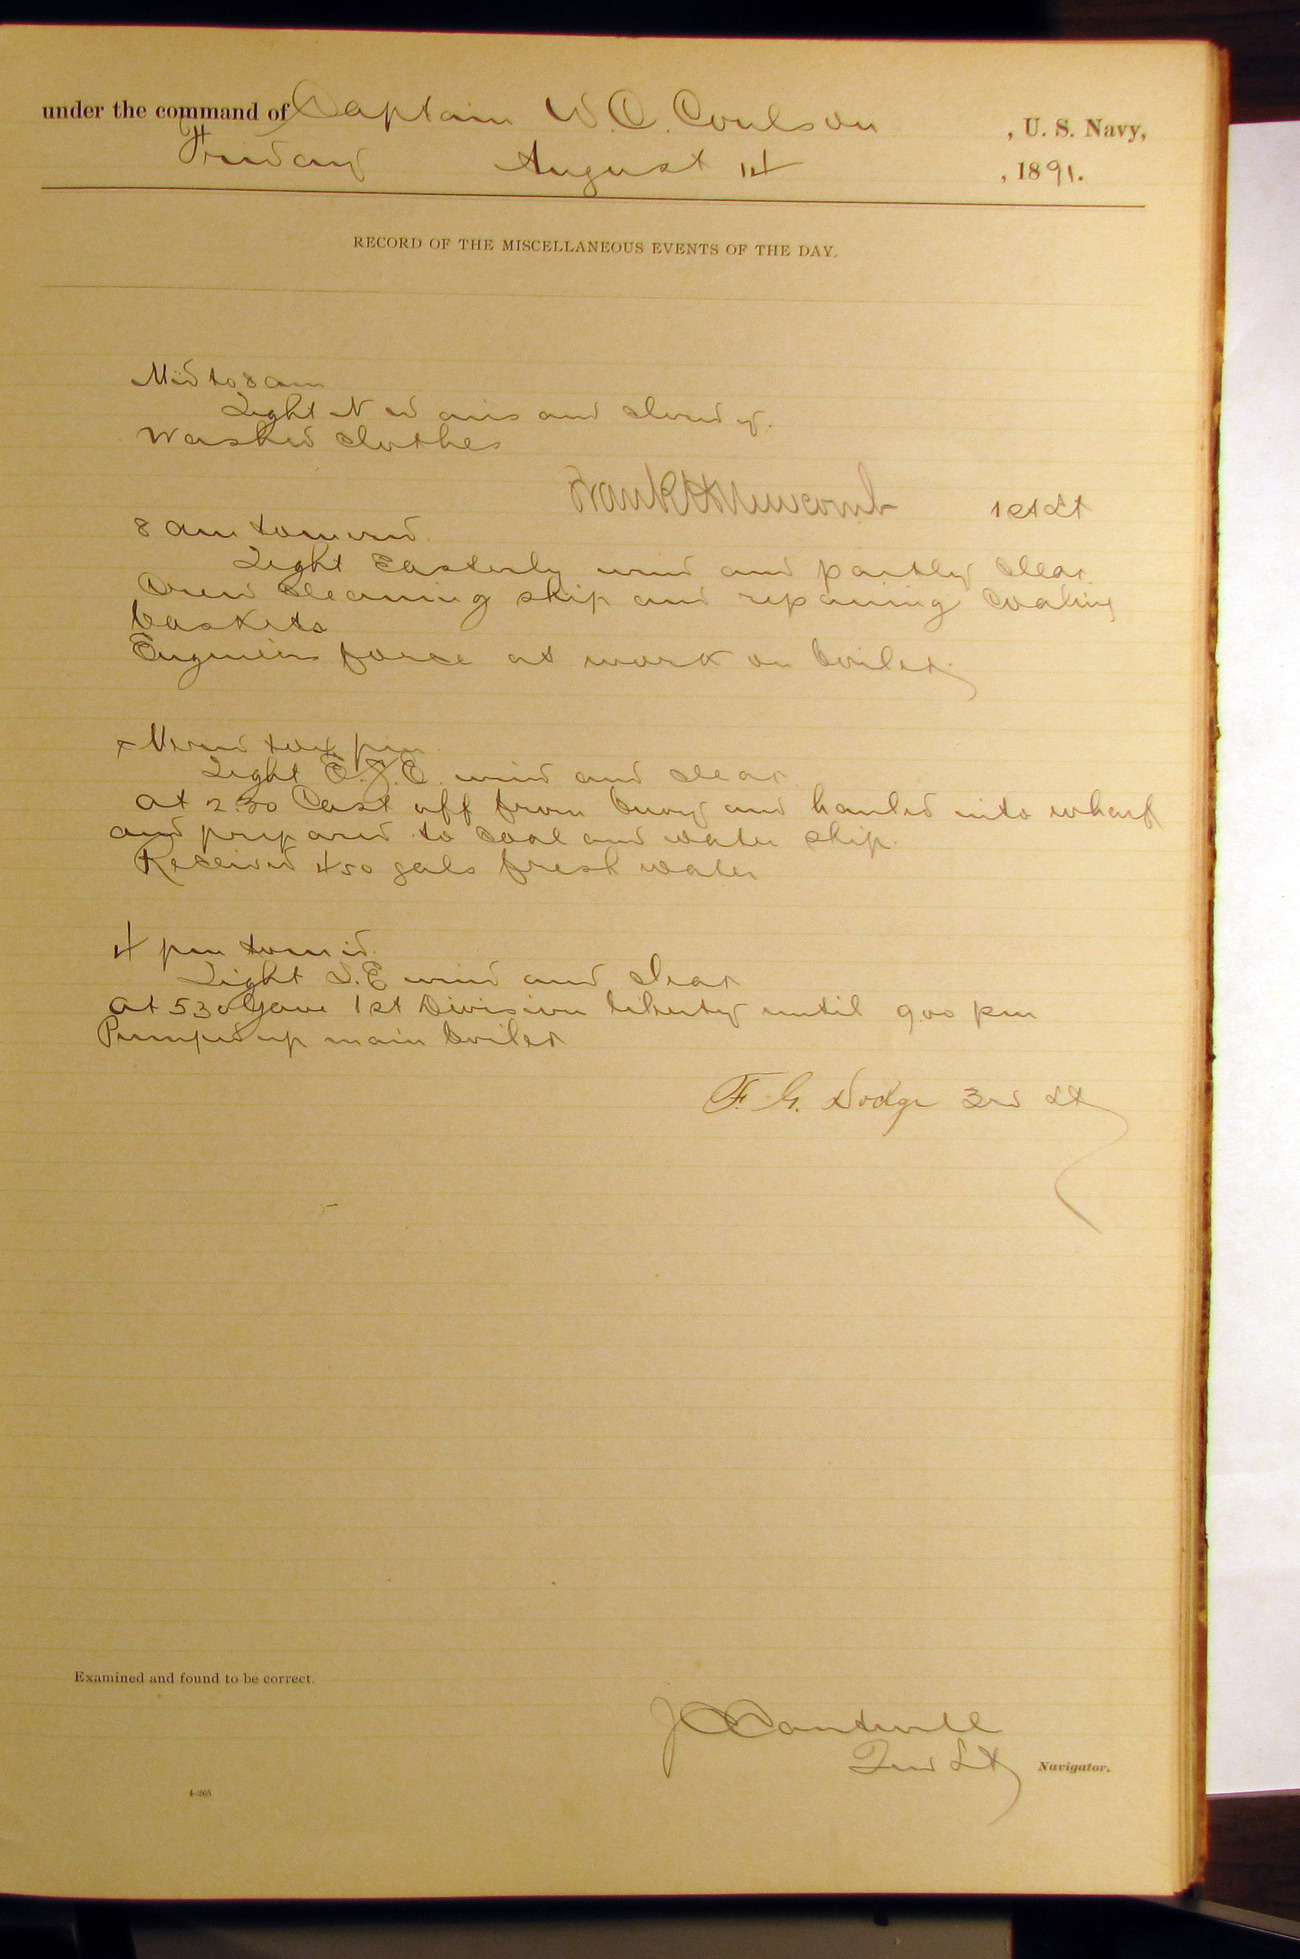 under the command of Captain W. C. Coulson, U. S. Navy,
Friday August 14, 1891.
RECORD OF THE MISCELLANEOUS EVENTS OF THE DAY.
Mid to 8 am
Light N W airs and cloudy.
Washed clothes
Frank H Newcomb 1st Lt
8 am to merid.
Light Easterly wind and partly clear.
Crew cleaning ship and repairing coaling
baskets
Engineers force at work on boiler.
Merid to 4 pm
Light E.S.E. wind and clear.
At 2 30 Cast off from buoy and hauled into wharf
and prepared to coal and water ship.
Received 450 gals fresh water
4 pm to mid.
Light S.E wind and clear
At 5 30 Gave 1st Division liberty until 9 00 pm
Pumped up main boiler
F. G. Dodge 3rd Lt
Examined and found to be correct.
J C Cantwell
2nd Lt Navigator.
4-265